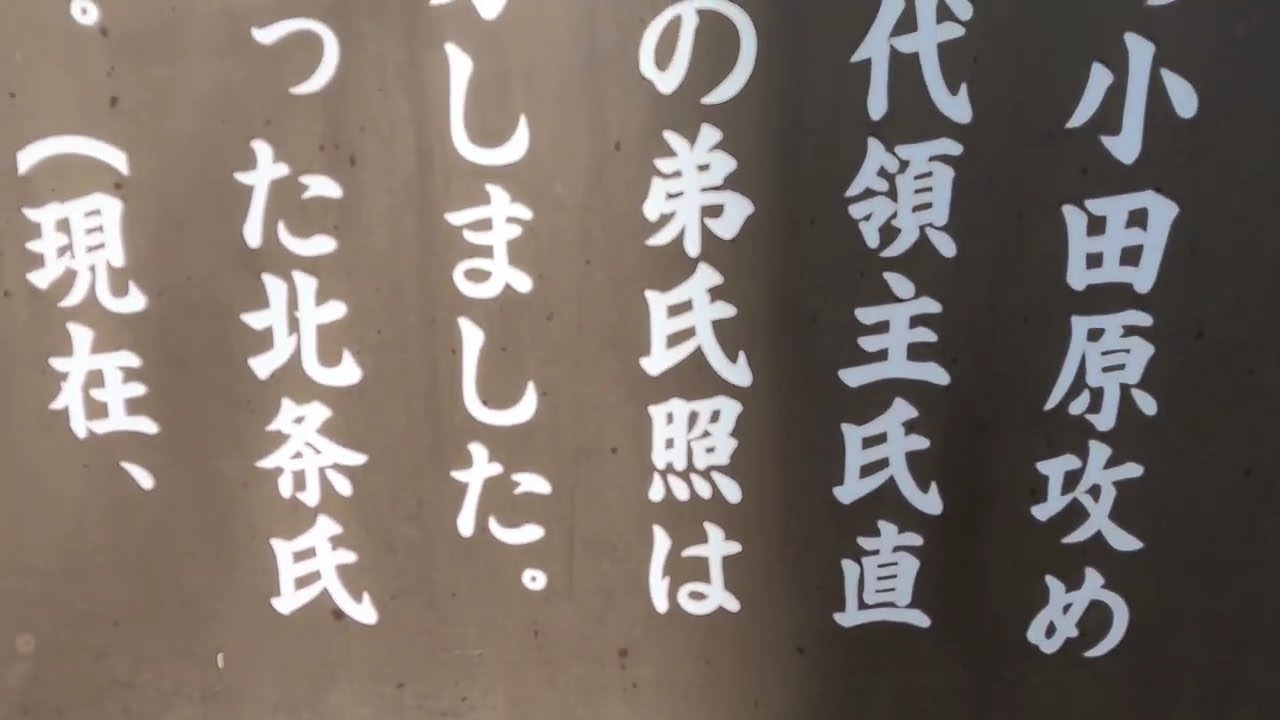 小田原攻め
代領主氏直
の弟氏照は
しました。
った北条氏
。(現在、